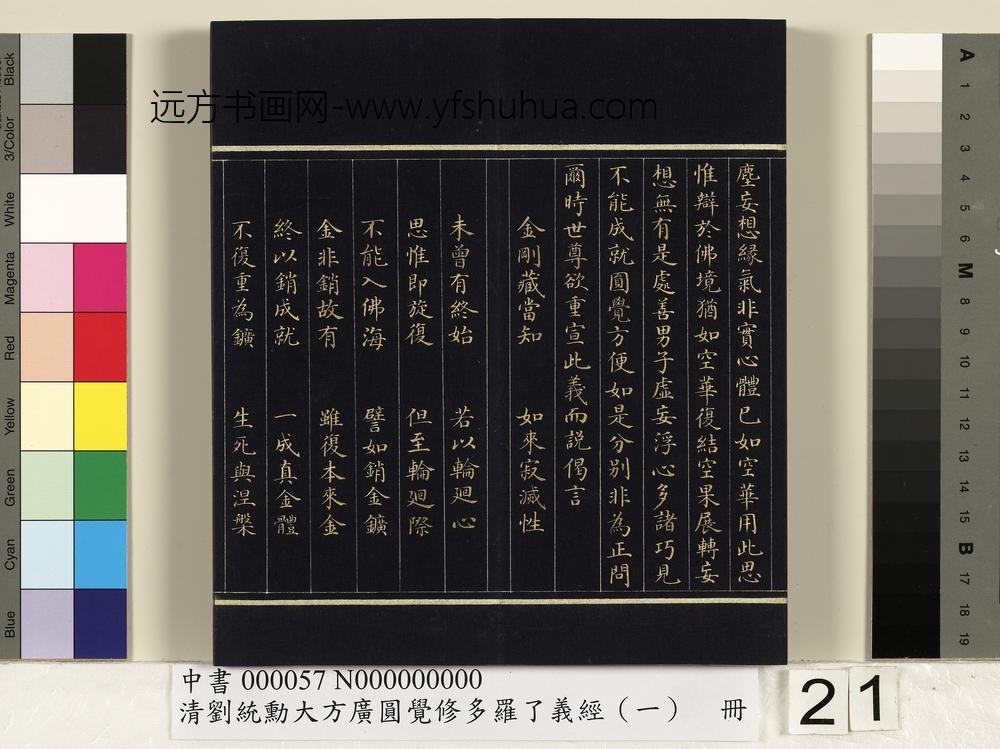 远方书画网-www.yfshuhua.com
塵妄想緣氣非實心體已如空華用此思
惟辯於佛境猶如空華復結空果展轉妄
想無有是處善男子虛妄浮心多諸巧見
不能成就圓覺方便如是分別非為正問
爾時世尊欲重宣此義而說偈言
金剛藏當知 如來寂滅性
未曾有終始 若以輪迴心
思惟即旋復 但至輪迴際
不能入佛海 譬如銷金鑛
金非銷故有 雖復本來金
終以銷成就 一成真金體
不復重為鑛 生死與涅槃
中書 000057 N000000000
清劉統勳大方廣圓覺修多羅了義經（一） 冊
21
Black
3/Color
White
Magenta
Red
Yellow
Green
Cyan
Blue
A
1
2
3
4
5
6
M
8
9
10
11
12
13
14
15
B
17
18
19